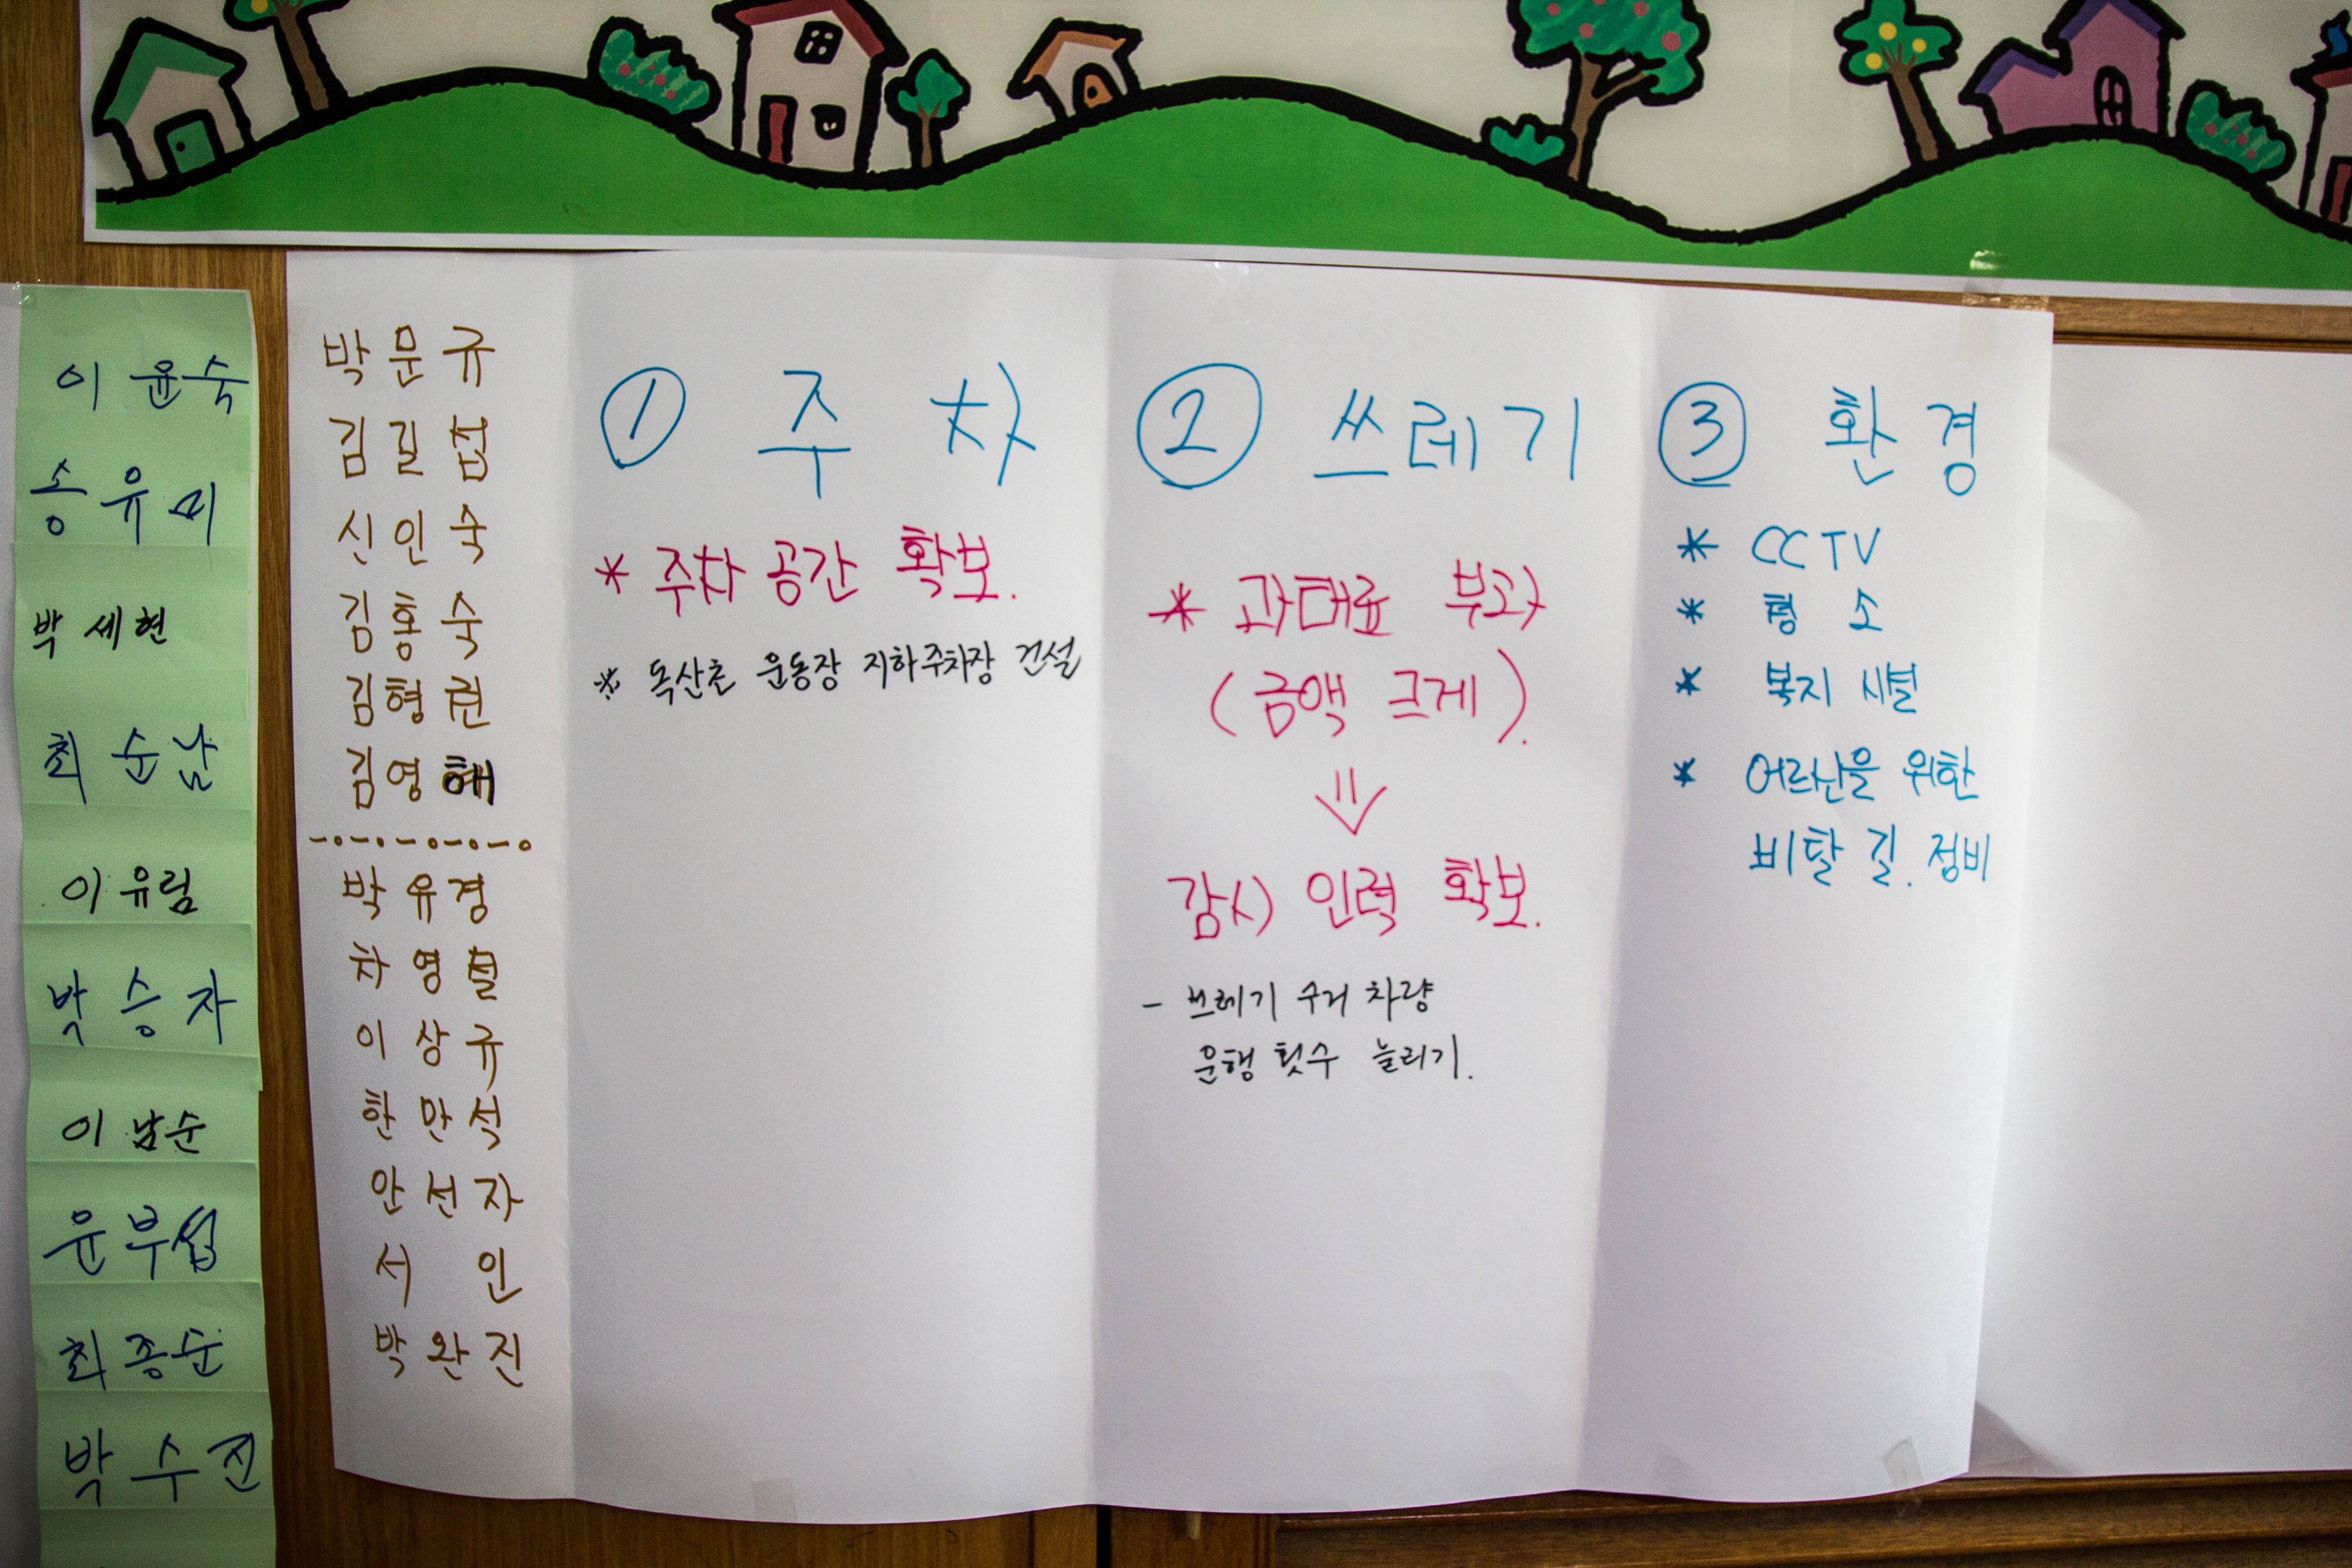 이윤숙
송유미
박세현
최순남
이유림
박승자
이남순
윤부섭
최종순
박수진
박문규
김길섭
신인숙
김홍숙
김형권
김영해
박유경
차영철
이상규
한만석
안선자
서인
박완진
① 주차
* 주차 공간 확보.
※ 독산초 운동장 지하주차장 건설
② 쓰레기
* 과태료 부과
(금액 크게).
⇓
감시 인력 확보.
- 쓰레기 수거 차량
운행 횟수 늘리기.
③ 환경
* CCTV
* 청소
* 복지 시설
* 을 위한
비탈 길. 정비